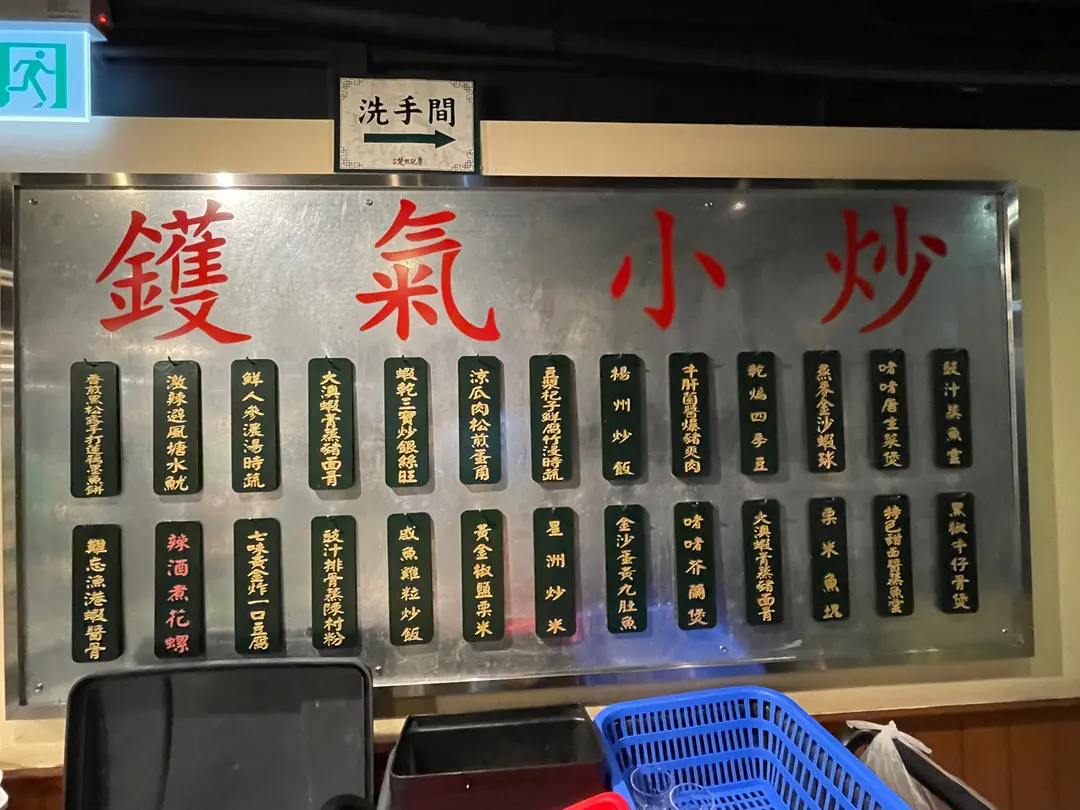 洗手間
鑊氣小炒
豉汁蒸魚雲
啫啫唐生菜煲
蒸麥金沙蝦球
乾煸四季豆
牛肝菌醬爆豬爽肉
楊州炒飯
豆漿杞子鮮腐竹浸時蔬
涼瓜肉松煎蛋角
蝦乾三寶炒銀絲旺
大澳蝦膏蒸豬面骨
鮮人參濃湯時蔬
激辣避風塘水魷
黑椒牛仔骨煲
特色甜面醬蒸魚雲
粟米魚塊
大澳蝦膏蒸豬面骨
啫啫芥蘭煲
金沙蛋黃九肚魚
星洲炒米
黃金椒鹽粟米
咸魚雞粒炒飯
豉汁排骨蒸陳村粉
七味黃金炸一口豆腐
辣酒煮花螺
難忘漁港蝦醬骨